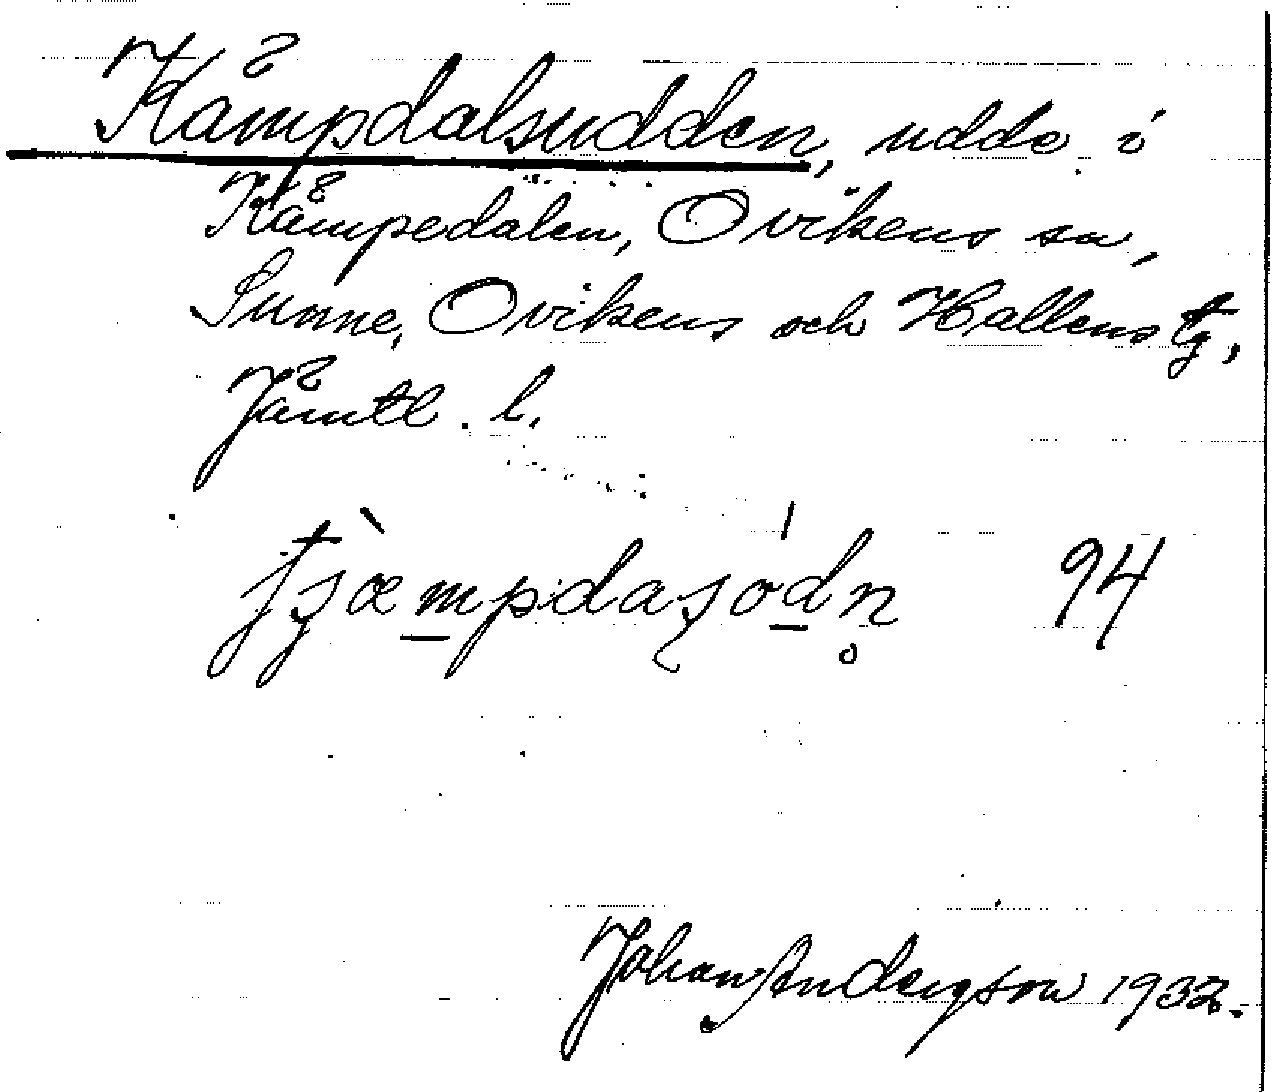 Kämpdalsudden, udde i
Kämpedalen, Ovikens sn,
Sunne, Ovikens och Hallens tg,
Jämtl. l.
94
Johan Anderzson 1932.